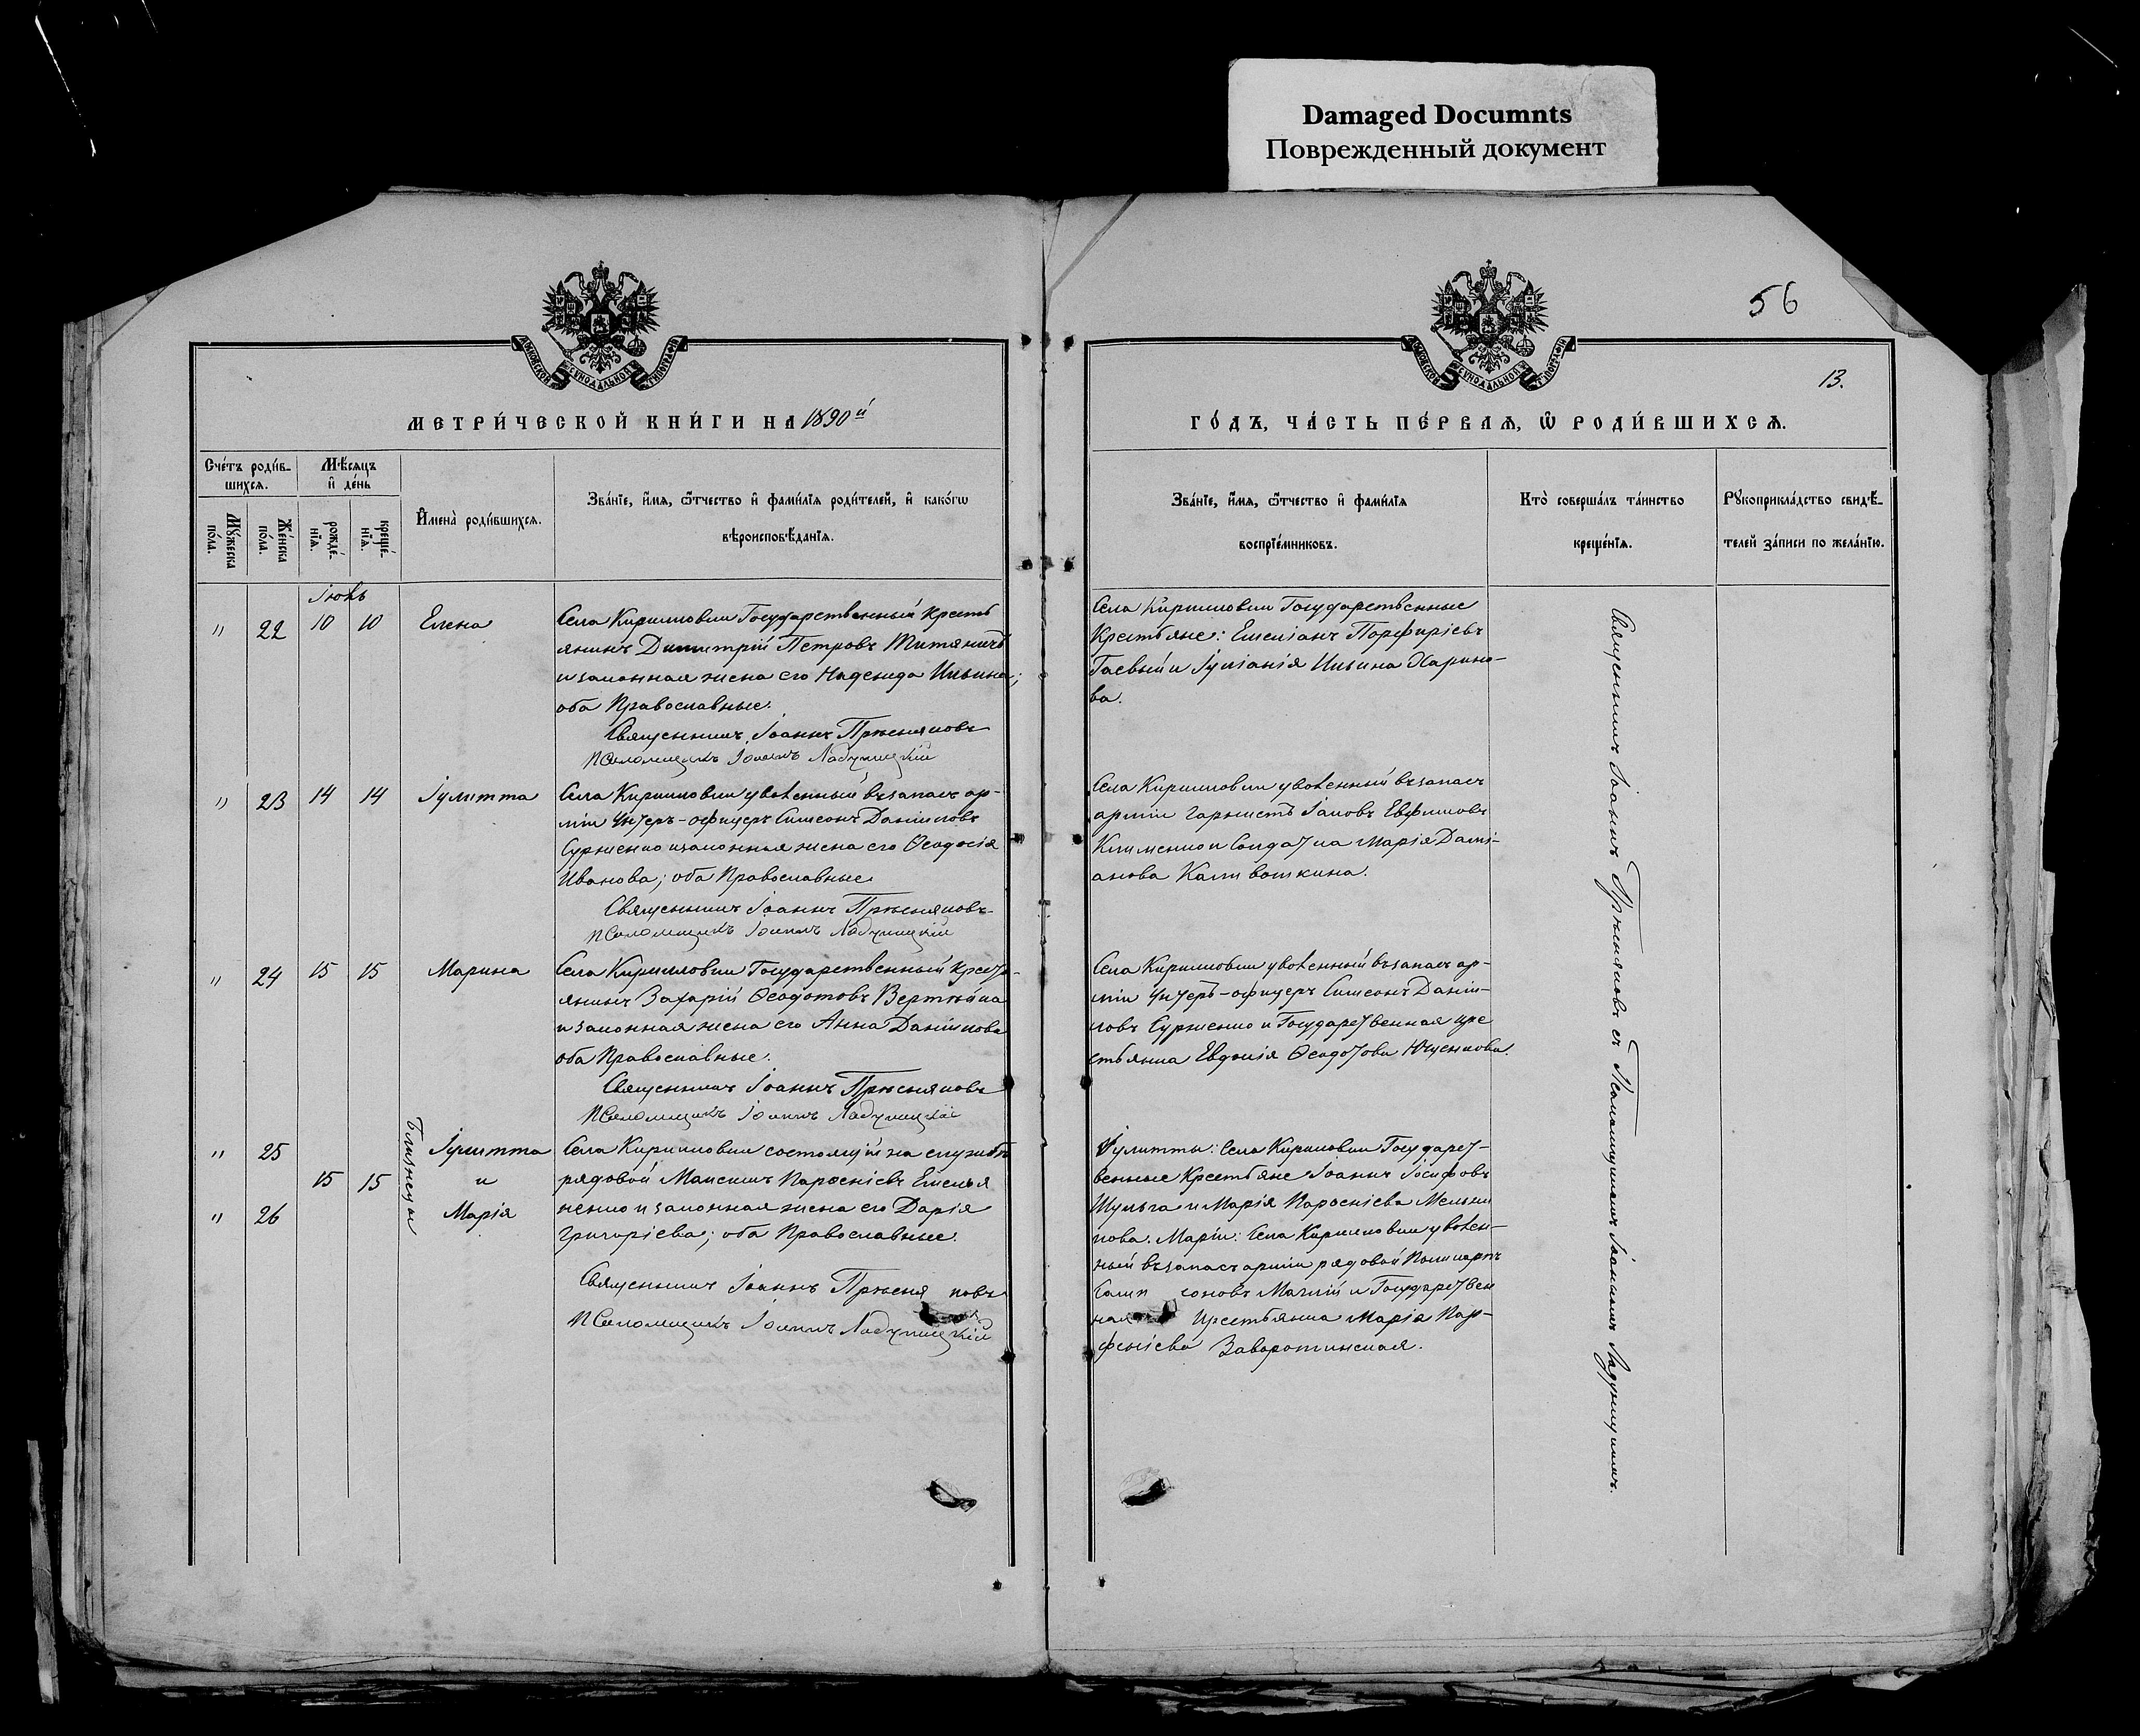 Damaged Documnts
Поврежденный документ
56
13.
МЕТРИ́ЧЕСКОЙ КНИ́ГИ НА 1890й
ГО́ДЪ, ЧА́СТЬ ПЕ́РВАѦ, Ѡ РОДИ́ВШИХСѦ.
Сче́тъ роди́в-
шихсѧ.
Мѣ́сѧцъ
и де́нь
Мꙋ́жеска по́ла.
Же́нска по́ла.
рожде́-
нїѧ.
креще́-
нїѧ.
Имена̀ роди́вшихсѧ.
Зва́нїе, и́мѧ, ѻ҆́тчество и фами́лїѧ роди́телей, и како́гѡ
вѣроисповѣ́данїѧ.
Зва́нїе, и́мѧ, ѻ҆́тчество и фами́лїѧ
воспрїе́мниковъ.
Кто̀ соверша́лъ та́инство
креще́нїѧ.
Рꙋкоприкла́дство свидѣ́-
телей за́писи по жела́нїю.
Іюнь
" 22 10 10 Елена
Села Кирилловки Государственный кресть
янинъ Димитрій Петровъ
и законная жена его Надежда Ильина;
оба Православные.
Священникъ Іоаннъ Прѣсняковъ
Псаломщикъ Іоаннъ Ладухицкій
Села Кирилловки Государственные
Крестьяне: Емеліанъ Порфиріевъ
Гаевый и Іуліанія Ильина Харико-
ва.
" 23 14 14 Іулитта
Села Кирилловки уволенный въ запасъ ар-
міи Унтеръ-офицеръ Симеонъ Даніиловъ
Сурженко и законная жена его Ѳеодосія
Иванова; оба Православные
Священникъ Іоаннъ Прѣсняковъ
Псаломщикъ Іоаннъ Ладухицкій
Села Кирилловки уволенный въ запасъ
арміи горнистъ Іаковъ Евфимовъ
Клименко и Солдатка Марія Дамі-
анова Каливошкина.
" 24 15 15 Марина
Села Кирилловки Государственный Крестъ-
янинъ Захарій Ѳеодотовъ
и законная жена его Анна Даніилова
оба Православные.
Священникъ Іоаннъ Прѣсняковъ
Псаломщикъ Іоаннъ Ладухицкій
Села Кирилловки уволенный въ запасъ ар-
міи Унтеръ-офицеръ Симеонъ Даніи-
ловъ Сурженко и Государственная кре
стьянка Евдокія Ѳеодотова Ющенкова.
Близнецы
" 25 Іулитта
15 15 и
" 26 Марія
Села Кирилловки состоящій на службѣ
рядовой Максимъ Парѳеніевъ Емелья
ненко и законная жена его Дарія
Григоріева; оба Православные.
Священникъ Іоаннъ Прѣсня ковъ
Псаломщикъ Іоаннъ Ладухицкій
Іулитты: Села Кириловки Государст-
венные Крестьяне Іоаннъ Іосифовъ
Шульга и Марія Парѳеніева Мельни
кова. Маріи: Села Кирилловки уволен-
ный въ запасъ арміи рядовой Поликарпъ
Самп соновъ Мачлій и Государствен
ная Крестьянка Марія Пар-
феніева Заворотинская.
Священникъ Іоаннъ Прѣсняковъ съ Псаломщикомъ Іоанномъ Ладухицкимъ.